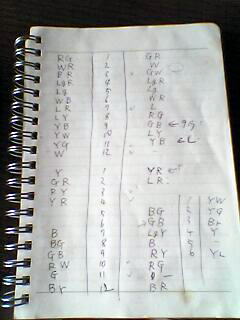 RG 1 GR
WR 2 W
BR 3 GW
LgR 4 LgR
Lg 5 Lg
WB 6 WR
LR 7 L
LY 8 RG
YB 9 GB ← gG
YW 10 LY
YG 11 YB ← L
W 12
Y 1 YR ←
GR 2 LR
RY 3
YR 4 YW
BG YG
GB Br
B 7 LgY 4 Y
BG 8 B 5
GB 9 RY 6 YL
RW 10 RG
G 11
Br 12 BR